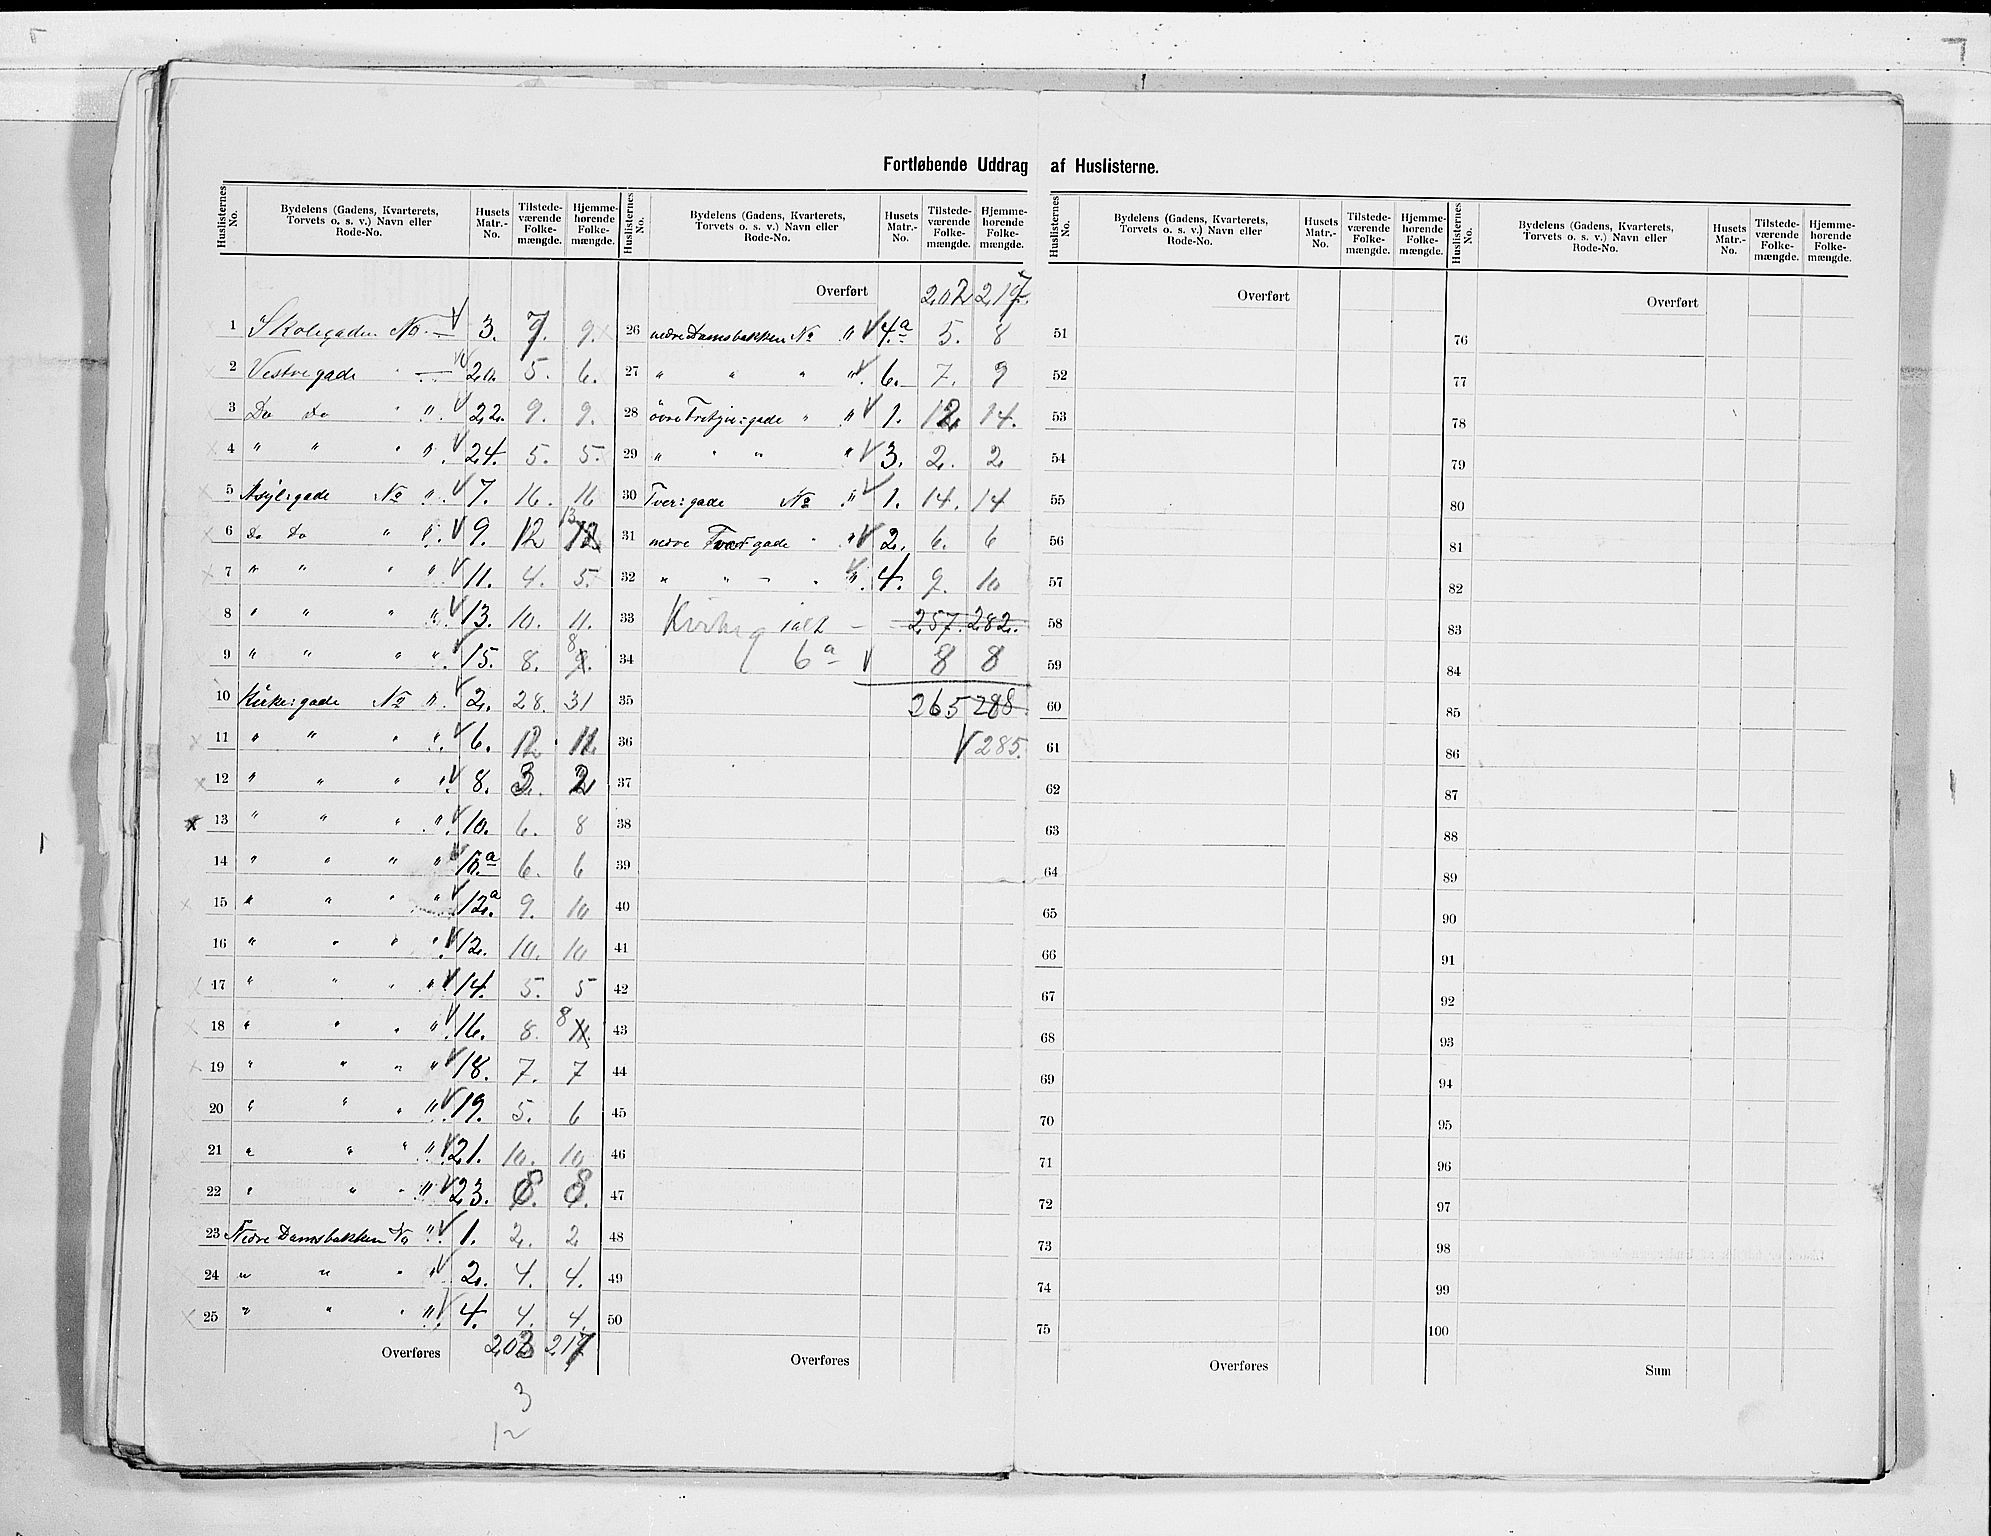 Fortløbende Uddrag af Huslisterne.
Huslisternes No. | Bydelens (Gadens, Kvarterets, Torvets o. s. v.) Navn eller Rode-No. | Husets Matr.-No. | Tilstedeværende Folkemængde. | Hjemmehørende Folkemængde.
1 Skolegaden No. — 3. 7. 9.
2 Vestregade " — 20. 5. 6.
3 Do do " " 22. 9. 9.
4 " " " " 24. 5. 5.
5 Asyl:gade No " 7. 16. 16
6 Do do " " 9. 12 13 12
7 " " " " 11. 4. 5.
8 " " " " 13. 10. 11.
9 " " " " 15. 8. 8 9.
10 Kirke:gade No " 2. 28. 31
11 " " " " 6. 12 11
12 " " " " 8. 3. 2
13 " " " " 10. 6. 8
14 " " " " 10.a 6. 6
15 " " " " 12.a 9. 10
16 " " " " 12. 10. 10
17 " " " " 14. 5. 5
18 " " " " 16. 8. 8 11.
19 " " " " 18. 7. 7
20 " " " " 19. 5. 6
21 " " " " 21. 10. 10
22 " " " " 23. 8. 8.
23 Nedre Damsbakken No " 1. 2. 2
24 " " " " 2. 4. 4.
25 " " " " 4. 4. 4.
Overføres 202 217
3
12
Huslisternes No. | Bydelens (Gadens, Kvarterets, Torvets o. s. v.) Navn eller Rode-No. | Husets Matr.-No. | Tilstedeværende Folkemængde. | Hjemmehørende Folkemængde.
Overført 202 217.
26 nedre Damsbakken No " 4.a 5. 8
27 " " " " 6. 7. 9
28 øvre Fritzjus:gade " " 1. 12 14.
29 " " " " 3. 2. 2
30 Tver:gade No " 1. 14. 14
31 nedre Tvergade " " 2. 6. 6
32 " " - " " 4. 9. 10
33 ialt — 257. 282.
34 6a 8 8
35 265 288
36 285.
37
38
39
40
41
42
43
44
45
46
47
48
49
50
Overføres
Huslisternes No. | Bydelens (Gadens, Kvarterets, Torvets o. s. v.) Navn eller Rode-No. | Husets Matr.-No. | Tilstedeværende Folkemængde. | Hjemmehørende Folkemængde.
Overført
51
52
53
54
55
56
57
58
59
60
61
62
63
64
65
66
67
68
69
70
71
72
73
74
75
Overføres
Huslisternes No. | Bydelens (Gadens, Kvarterets, Torvets o. s. v.) Navn eller Rode-No. | Husets Matr.-No. | Tilstedeværende Folkemængde. | Hjemmehørende Folkemængde.
Overført
76
77
78
79
80
81
82
83
84
85
86
87
88
89
90
91
92
93
94
95
96
97
98
99
100
Sum